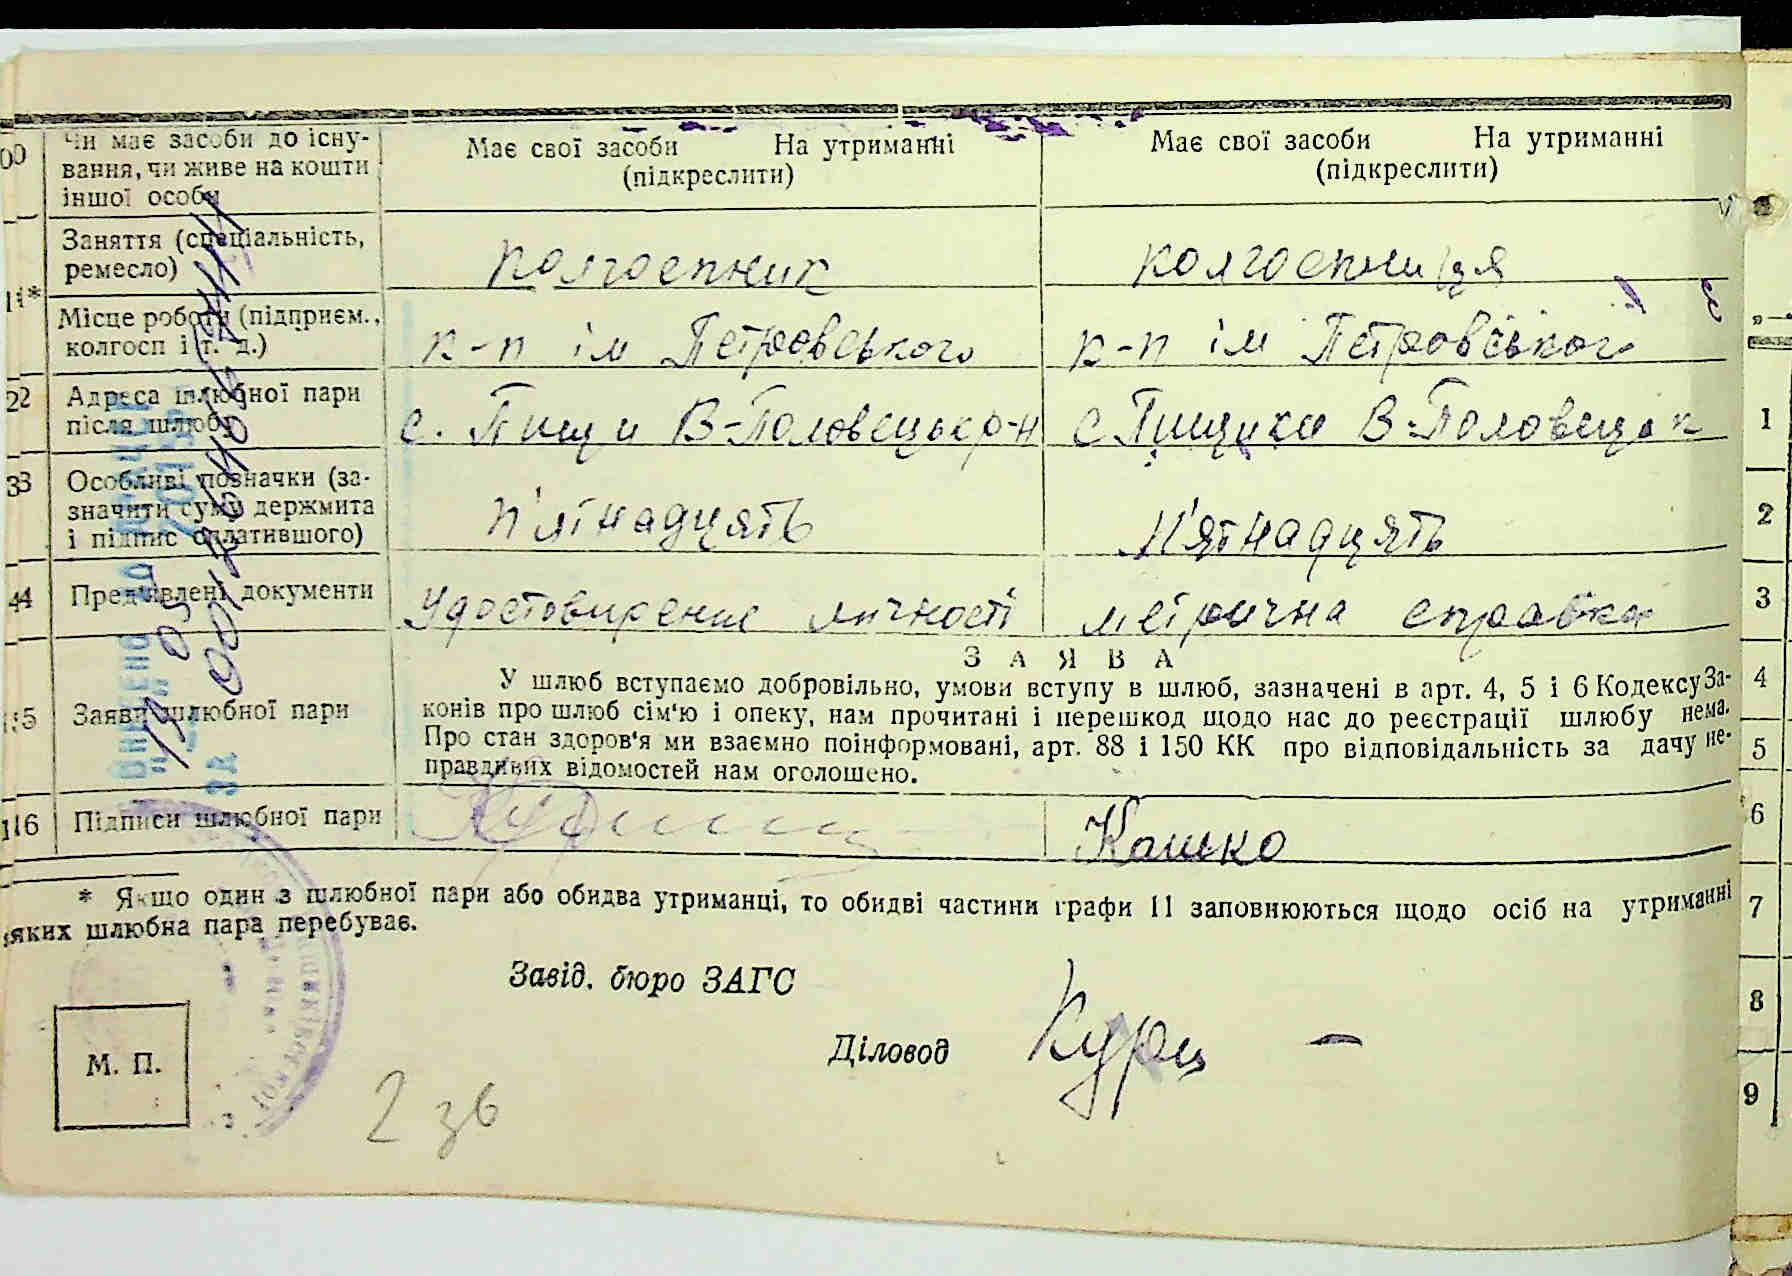 10 Чи має засоби до існу-
вання, чи живе на кошти
іншої особи
Має свої засоби На утриманні
(підкреслити)
Має свої засоби На утриманні
(підкреслити)
11*
Заняття (спеціальність,
ремесло)
колгоспник
колгоспниця
Місце роботи (підприєм.,
колгосп і т. д.)
к-п ім Петровського
к-п ім Петровського
12 Адреса шлюбної пари
після шлюбу
с. Пищики В-Половецьк р-н
с Пищики В-Половецьк
13 Особливі позначки (за-
значити суму держмита
і підпис сплатившого)
п'ятнадцять
п'ятнадцять
14 Пред'явлені документи
Удостовирение личності
метрична справка
15 Заява шлюбної пари
ЗАЯВА
У шлюб вступаємо добровільно, умови вступу в шлюб, зазначені в арт. 4, 5 і 6 Кодексу За-
конів про шлюб сім'ю і опеку, нам прочитані і перешкод щодо нас до реєстрації шлюбу нема.
Про стан здоров'я ми взаємно поінформовані, арт. 88 і 150 КК про відповідальність за дачу не-
правдивих відомостей нам оголошено.
16 Підписи шлюбної пари
Кошко
* Якщо один з шлюбної пари або обидва утриманці, то обидві частини графи 11 заповнюються щодо осіб на утриманні
яких шлюбна пара перебуває.
Завід. бюро ЗАГС
Діловод
Курц
М. П.
2 зв
1
2
3
4
5
6
7
8
9